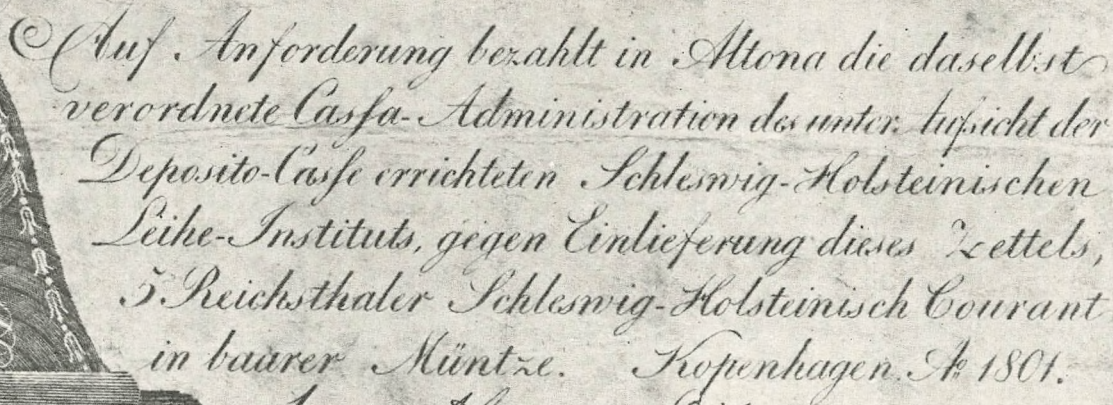 Auf Anforderung bezahlt in Altona die daselbst
verordnete Cassa-Administration des unter Aufsicht der
Deposito-Casse errichteten Schleswig-Holsteinischen
Leihe-Instituts, gegen Einlieferung dieses Zettels,
5 Reichsthaler Schleswig-Holsteinisch Courant
in baarer Müntze. Kopenhagen. Aº 1801.